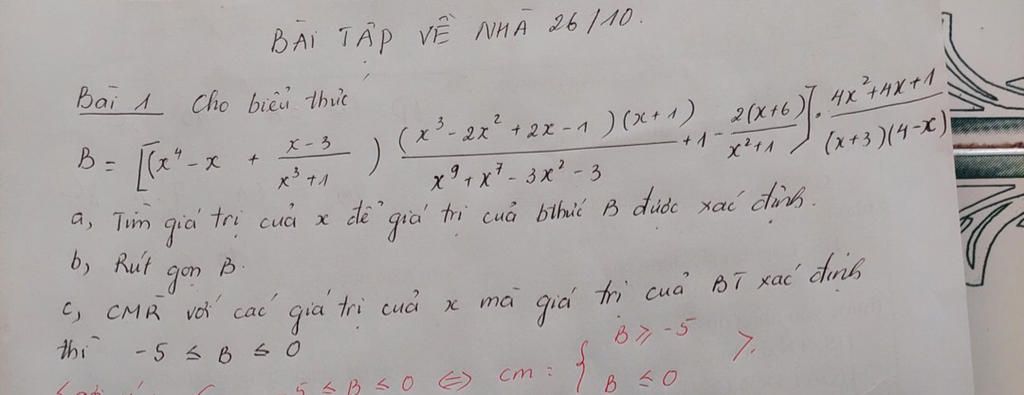 BÀI TẬP VỀ NHÀ 26/10.
Bài 1 Cho biểu thức
B = [(x⁴ - x + (x-3)/(x³+1)) ((x³ - 2x² + 2x - 1)(x+1))/(x⁹ + x⁷ - 3x² - 3) + 1 - (2(x+6))/(x²+1)] . (4x² + 4x + 1)/((x+3)(4-x))
a, Tìm giá trị của x để giá trị của bthức B được xác định.
b, Rút gọn B.
c, CMR với các giá trị của x mà giá trị của BT xác định
thì -5 ≤ B ≤ 0
5 ≤ B ≤ 0 ⇔ cm : { B ≥ -5
B ≤ 0